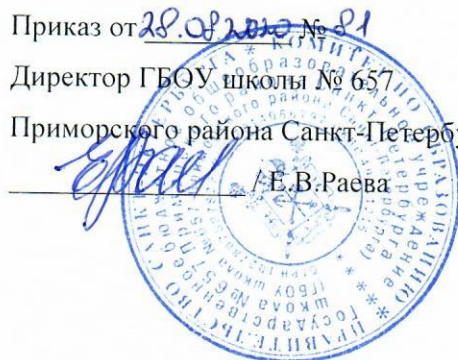 Приказ от 28.08.2020 № 81
Директор ГБОУ школы № 657
Приморского района Санкт-Петербу
/ Е.В.Раева